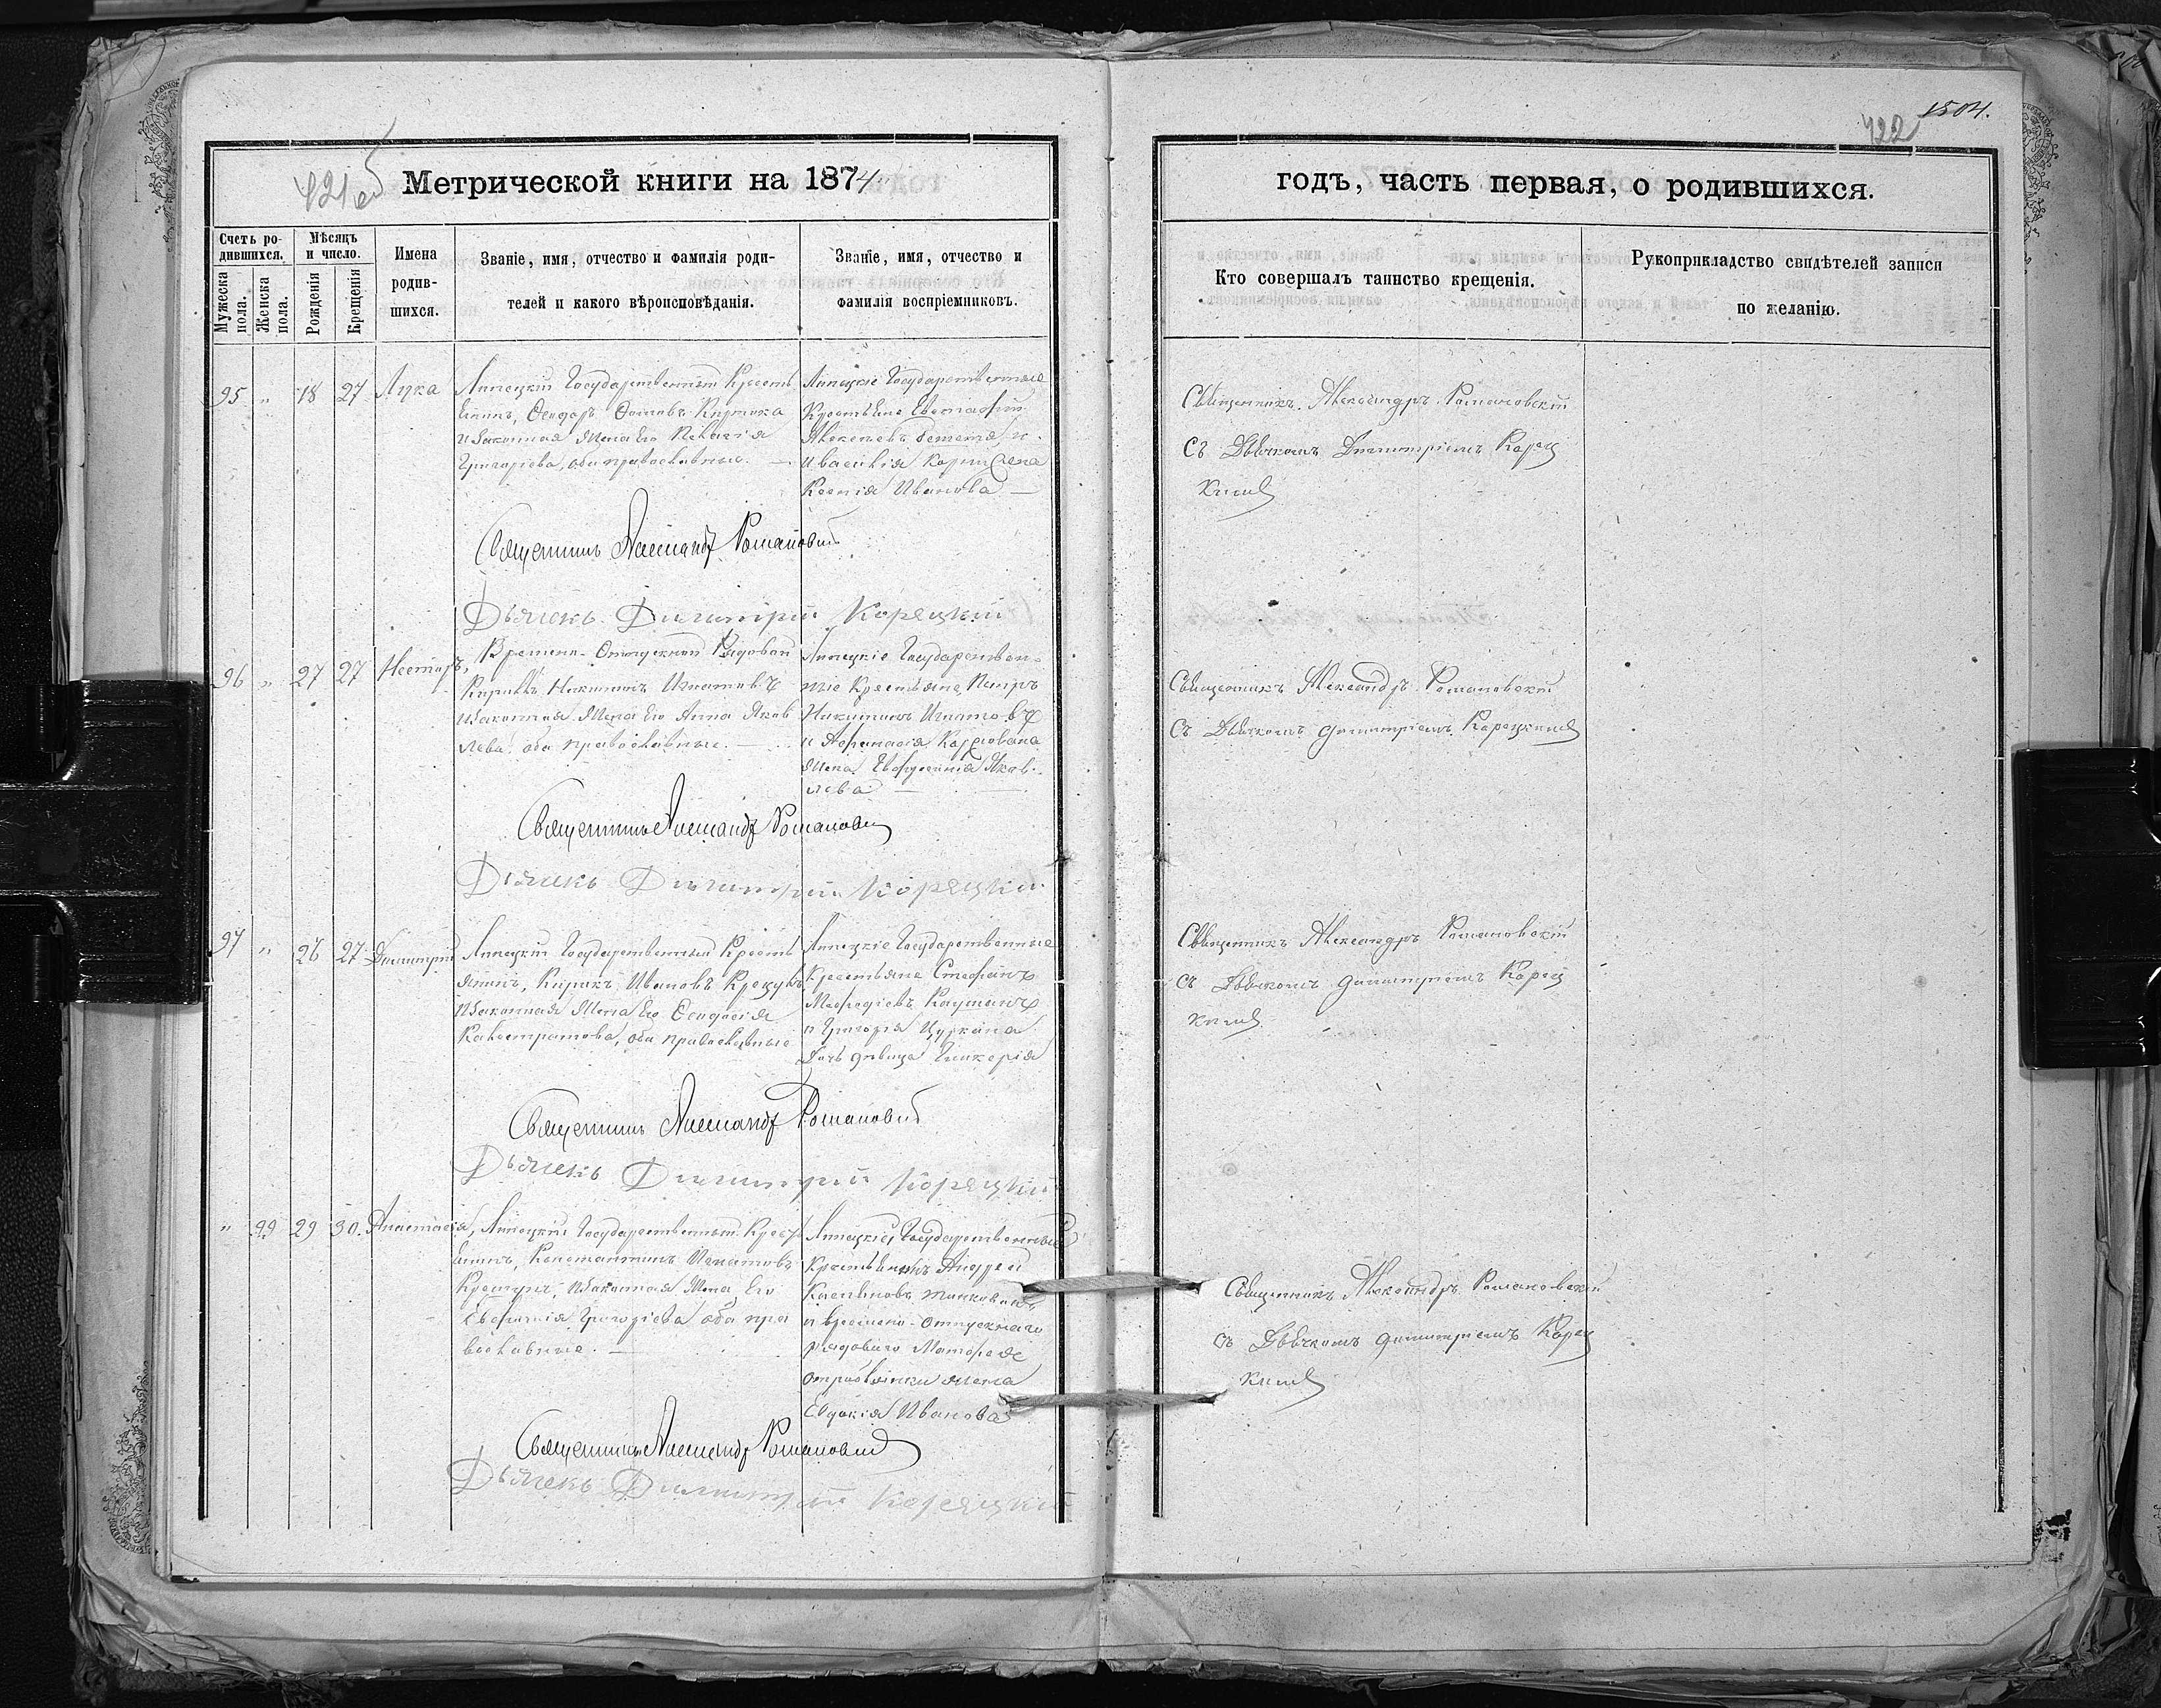 421об
Метрической книги на 1874
Счетъ ро-
дившихся.
Мѣсяцъ
и число.
Мужеска
пола.
Женска
пола.
Рожденія
Крещенія
Имена
родив-
шихся.
Званіе, имя, отчество и фамилія роди-
телей и какого вѣроисповѣданія.
Званіе, имя, отчество и
фамилія воспріемниковъ.
95 „ 18 27 Лука
Липецкій Государственный Кресть
янинъ, Ѳеодоръ
и законная жена Его Пелагія
Григоріева, оба православные. —
Липецкіе Государственные
Крестьяне Евстафій
и Василія жена
Ксенія Иванова —
Священникъ Александръ Романовскій
Дьячекъ Димитрій Корецкій
96 „ 27 27 Несторъ,
Временно-Отпускной Рядовой
Кириллъ Никитинъ Игнатовъ
и законная Жена Его Анна Яков
лева. оба православные. —
Липецкіе Государствен-
ные Крестьяне, Петръ
Никитинъ Игнатовъ
и Афанасія
жена Евфросинія Яков-
лева —
Священникъ Александръ Романовскій
Дьячекъ Димитрій Корецкій
97 „ 26 27 Димитрій
Липецкій Государственный Кресть
янинъ, Кирикъ Ивановъ
и законная Жена Его Ѳеодосія
Калистратова, оба православные
Липецкіе Государственные
Крестьяне Стефанъ
Меѳодіевъ
и Григорія Цуркана
дочь девица Гликерія
Священникъ Александръ Романовскій
Дьячекъ Димитрій Корецкій
„ 99 29 30. Анастасія,
Липецкій Государственный Кресть
янинъ, Константинъ Игнатовъ
и законная Жена Его
Евфимія Григоріева оба пра
вославные. —
Липецкіе, Государственные
Крестьянинъ Андрей
и временно-отпускнаго
рядоваго
жена
Евдокія Иванова
Священникъ Александръ Романовскій
Дьячекъ Димитрій Корецкій
1504.
422
годъ, часть первая, о родившихся.
Кто совершалъ таинство крещенія.
Рукоприкладство свидѣтелей записи
по желанію.
Священникъ Александръ Романовскій
Съ Дьячкомъ Димитріемъ Корец
кимъ
Священникъ Александръ Романовскій
Съ Дьячкомъ Димитріемъ Корецкимъ
Священникъ Александръ Романовскій
съ Дьячкомъ Димитріемъ Корец
кимъ
Священникъ Александръ Романовскій
съ Дьячкомъ Димитріемъ Корец
кимъ